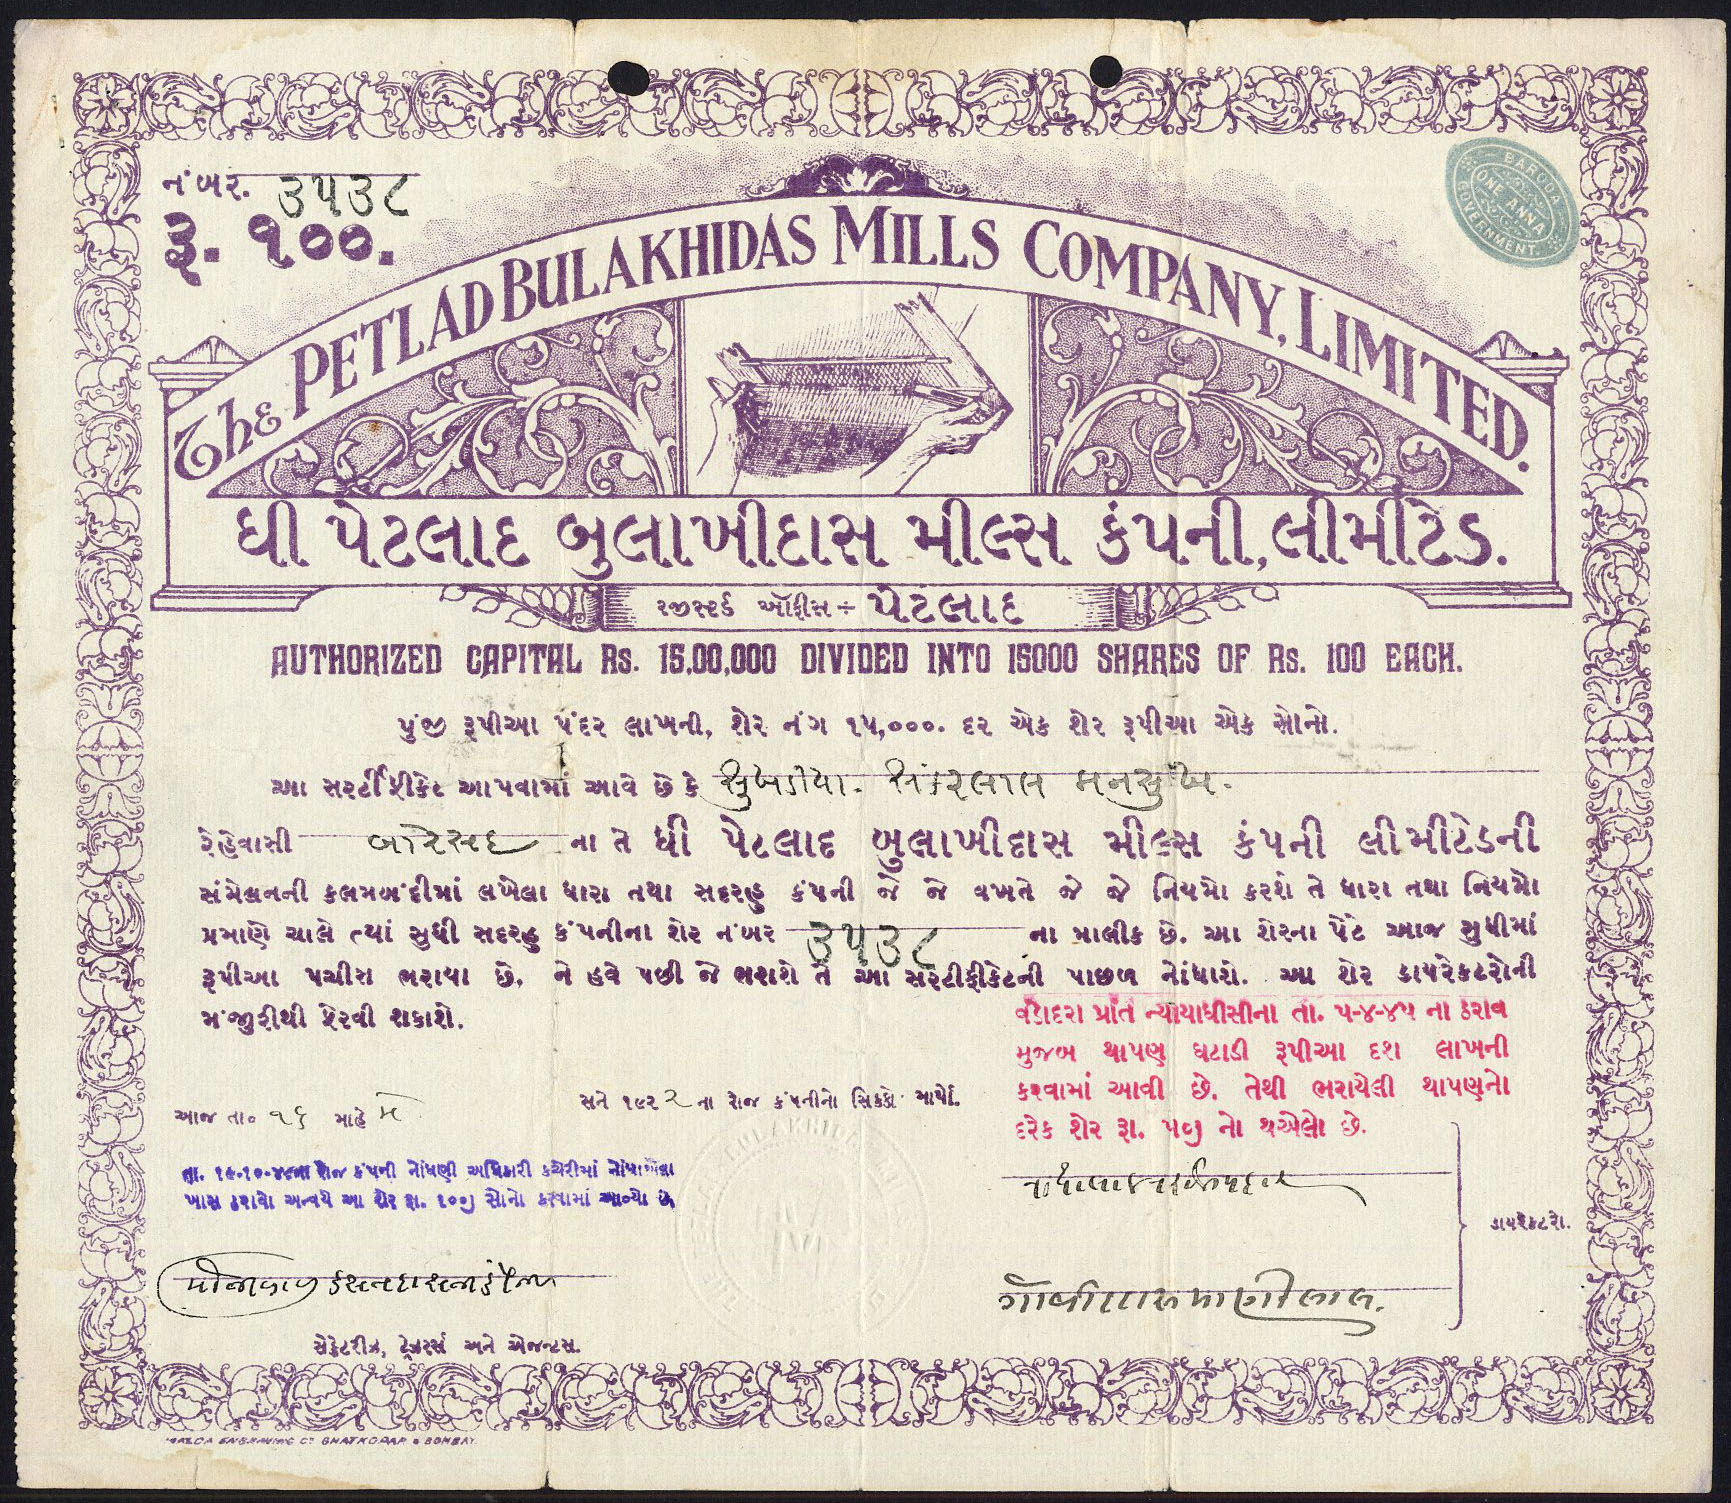 નંબર. ૩૫૩૮
રૂ. ૧૦૦.
BARODA GOVERNMENT.
ONE ANNA
The PETLAD BULAKHIDAS MILLS COMPANY, LIMITED.
ધી પેટલાદ બુલાખીદાસ મીલ્સ કંપની, લીમીટેડ.
રજીસ્ટર્ડ ઑફીસ ÷ પેટલાદ
AUTHORIZED CAPITAL RS. 15,00,000 DIVIDED INTO 15000 SHARES OF RS. 100 EACH.
પુંજી રૂપીઆ પંદર લાખની, શેર નંગ ૧૫,૦૦૦. દર એક શેર રૂપીઆ એક સોનો.
આ સરટીફીકેટ આપવામાં આવે છે કે સુખડીયા. શંકરલાલ મનસુખ.
રેહેવાસી બોરસદ ના તે ધી પેટલાદ બુલાખીદાસ મીલ્સ કંપની લીમીટેડની
સંમેલનની કલમબંદીમાં લખેલા ધારા તથા સદરહુ કંપની જે જે વખતે જે જે નિયમો કરશે તે ધારા તથા નિયમો
પ્રમાણે ચાલે ત્યાં સુધી સદરહુ કંપનીના શેર નંબર ૩૫૩૮ ના માલીક છે. આ શેરના પેટે આજ સુધીમાં
રૂપીઆ પચીસ ભરાયા છે, ને હવે પછી જે ભરાશે તે આ સરટીફીકેટની પાછળ નોંધાશે. આ શેર ડાયરેકટરોની
મંજુરીથી ફેરવી શકાશે.
વડોદરા પ્રાંત ન્યાયાધીસીના તા. ૫-૪-૪૫ ના ઠરાવ
મુજબ થાપણ ઘટાડી રૂપીઆ દશ લાખની
કરવામાં આવી છે. તેથી ભરાયેલી થાપણનો
દરેક શેર રૂા. ૫૦) નો થએલો છે.
આજ તા૦ ૧૬ માહે મે સને ૧૯૨૨ ના રોજ કંપનીનો સિક્કો માર્યો.
તા. ૧૯-૧૦-૪૯ના રોજ કંપની નોંધણી અધિકારી કચેરીમાં નોંધાએલા
ખાસ ઠરાવો અન્વયે આ શેર રૂા. ૧૦૦) સોનો કરવામાં આવ્યો છે
ડાયરેકટરો.
સેક્રેટરીઝ, ટ્રેઝરર્સ અને એજન્ટસ.
ENGRAVING CO GHATKOPAR BOMBAY.